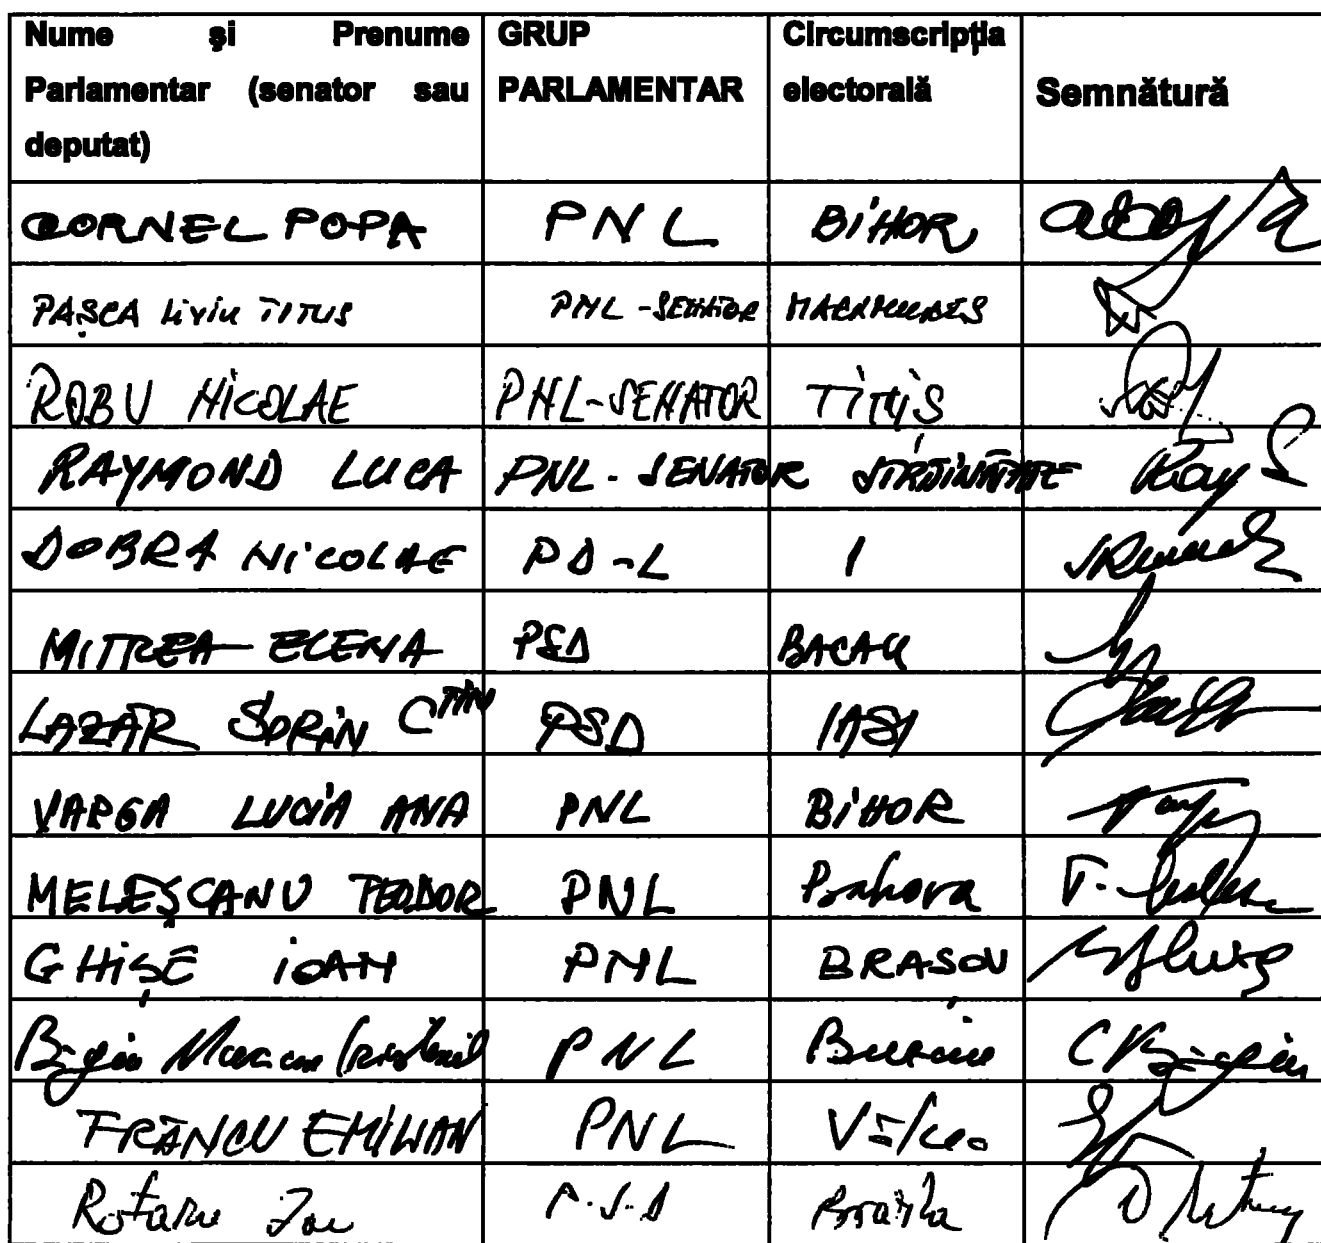 Nume și Prenume Parlamentar (senator sau deputat) GRUP PARLAMENTAR Circumscripția electorală Semnătură
CORNEL POPA PNL BIHOR
PAȘCA Liviu TITUS PNL-SENATOR MARAMUREȘ
ROBU NICOLAE PNL-SENATOR TIMIȘ
RAYMOND LUCA PNL-SENATOR STRĂINĂTATE
DOBRA NICOLAE PD-L 1
MITREA ELENA PSD BACAU
LAZĂR SORIN CTIN PSD IASI
VARGA LUCIA ANA PNL BIHOR
MELEȘCANU TEODOR PNL Prahova
GHIȘE IOAN PNL BRASOV
PNL
FRÂNCU EMILIAN PNL Vâlcea
Rotaru Ion P.S.D Brăila